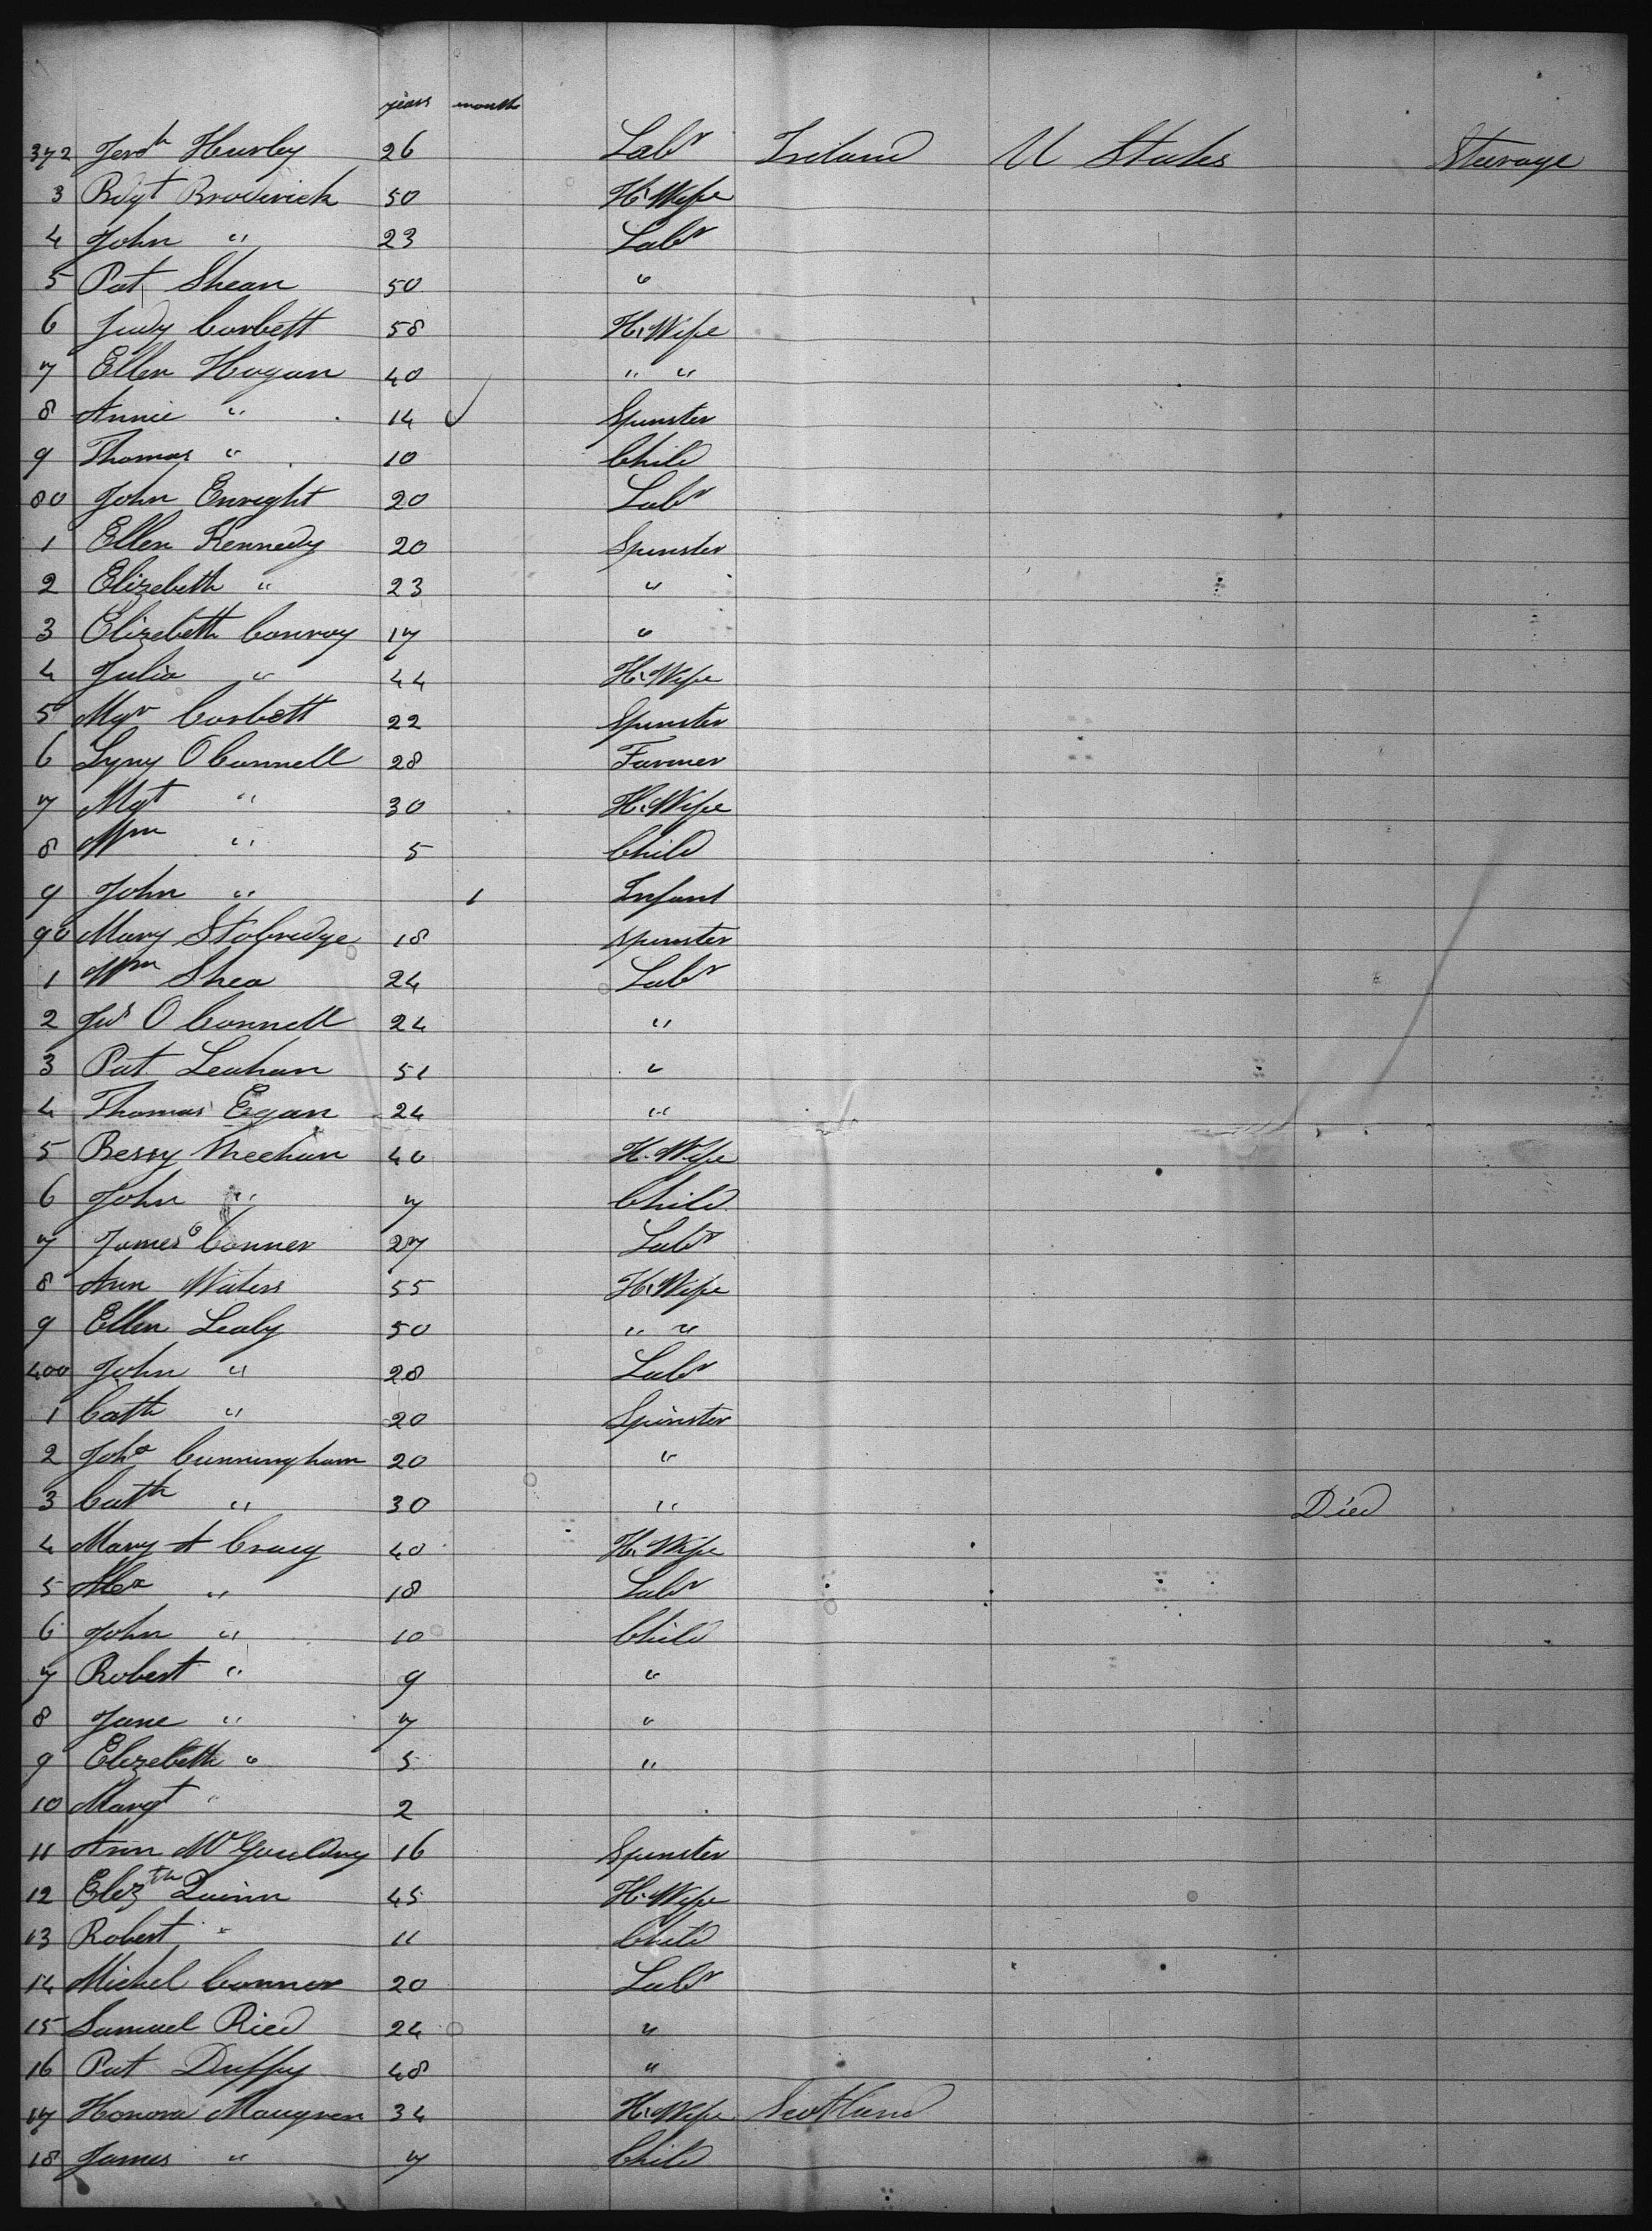 years months
372 Jerh Hurley 26 Labr Ireland U States Steerage
3 Bdgt Broderick 50 H. Wife
4 John " 23 Labr
5 Pat Shean 50 "
6 Judy Corbett 58 H. Wife
7 Ellen Hogan 40 " "
8 Annie " 14 Spinster
9 Thomas " 10 Child
80 John Enright 20 Labr
1 Ellen Kennedy 20 Spinster
2 Elizebeth " 23 "
3 Elizebeth Conroy 17 "
4 Julia " 44 H. Wife
5 Mgr Corbett 22 Spinster
6 O Connell 28 Farmer
7 Mgt " 30 H. Wife
8 Wm " 5 Child
9 John " 1 Infant
90 Mary 18 Spinster
1 Wm Shea 24 Labr
2 O Connell 24 "
3 Pat Leahan 51 "
4 Thomas Egan 24 "
5 Bessy Meehan 40 H. Wife
6 John " 7 Child
7 James Conner 27 Labr
8 Ann Waters 55 H. Wife
9 Ellen Lealy 50 " "
400 John " 28 Labr
1 Cath " 20 Spinster
2 Joha Cunningham 20 "
3 Cath " 30 " Died
4 Mary A Craig 40 H. Wife
5 Alex " 18 Labr
6 John " 10 Child
7 Robert " 9 "
8 Jane " 7 "
9 Elizebeth " 5 "
10 Margt " 2
11 Ann 16 Spinster
12 Elizth Quinn 45 H. Wife
13 Robert " 11 Child
14 Michel Connor 20 Labr
15 Samuel Ried 24 "
16 Pat Duffy 48 "
17 Honora 34 H. Wife Scotland
18 James " 7 Child